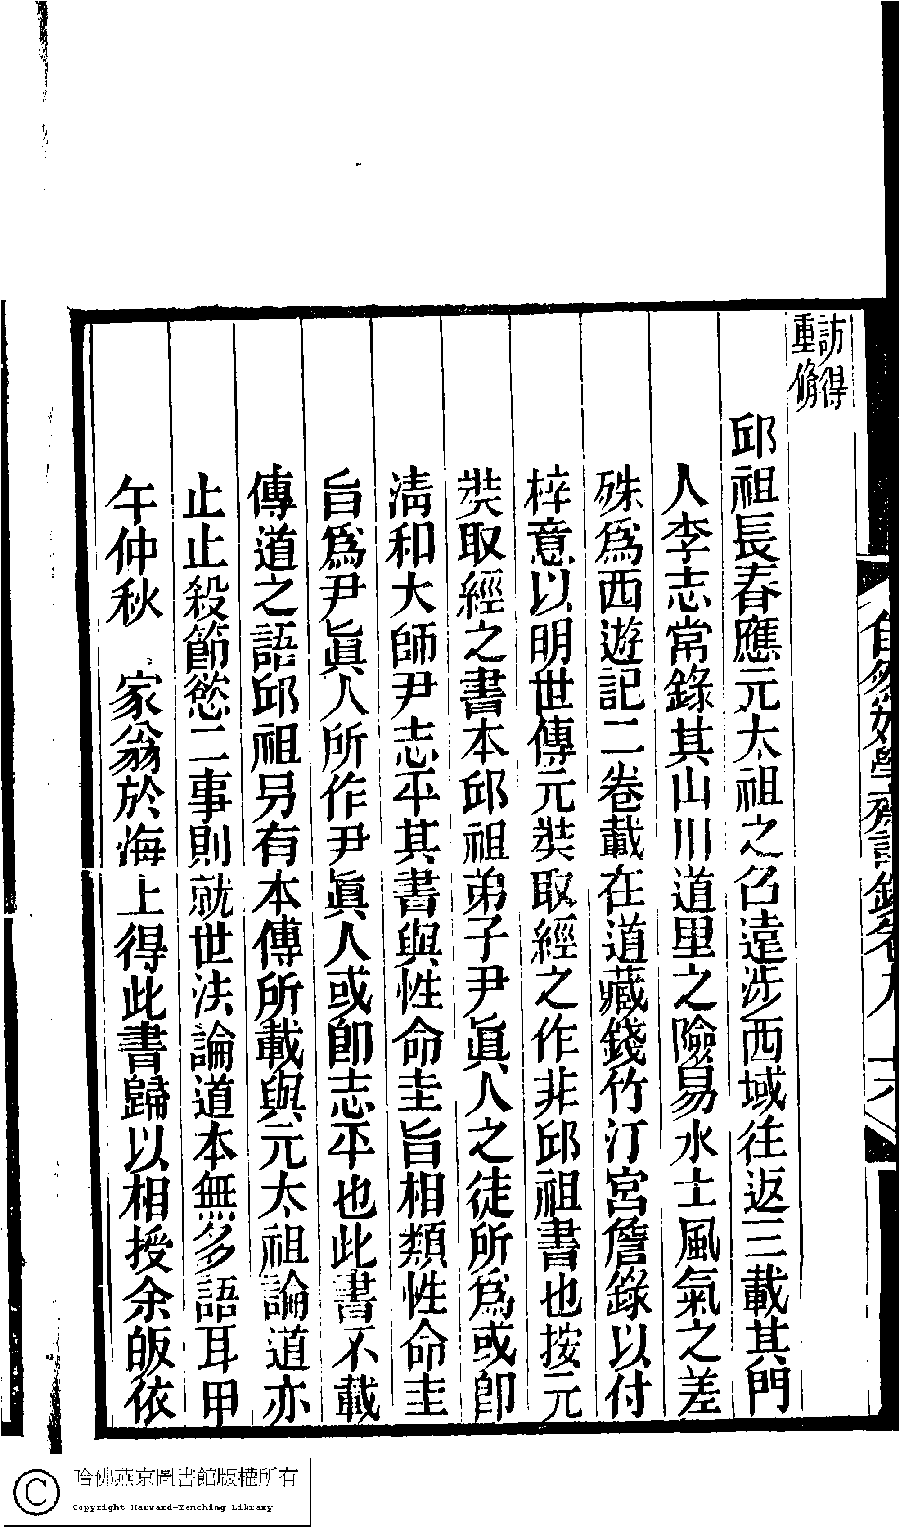 訪得
重脩
邱祖長春應元太祖之召遠涉西域往返三載其門
人李志常錄其山川道里之險易水土風氣之差
殊爲西遊記二卷載在道藏錢竹汀宮詹錄以付
梓意以明世傳元奘取經之作非邱祖書也按元
奘取經之書本邱祖弟子尹眞人之徒所爲或卽
淸和大師尹志平其書與性命圭旨相類性命圭
旨爲尹眞人所作尹眞人或卽志平也此書不載
傳道之語邱祖另有本傳所載與元太祖論道亦
止止殺節慾二事則就世法論道本無多語耳甲
午仲秋 家翁於海上得此書歸以相授余皈依
自然好學齋詩鈔卷九 十六
哈佛燕京圖書館版權所有
Copyright Harvard-Yenching Library